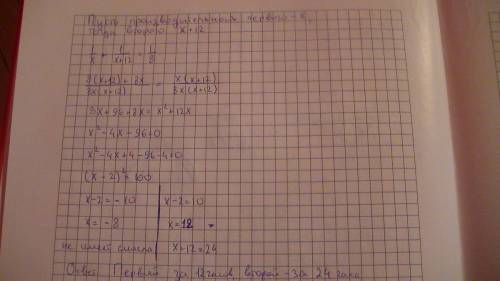 Пусть производительный первого - х,
тогда второго x+12
1/x + 1/(x+12) = 1/8
(8(x+12)+8x)/(8x(x+12)) = (x(x+12))/(8x(x+12))
8x+96+8x=x²+12x
x²-4x-96=0
x²-4x+4-96-4=0
(x-2)²=100
x-2=-10 x-2=10
x=-8 x=12
не имеет смысла x+12=24
Ответ: Первый за 12 часов, второй - за 24 часа